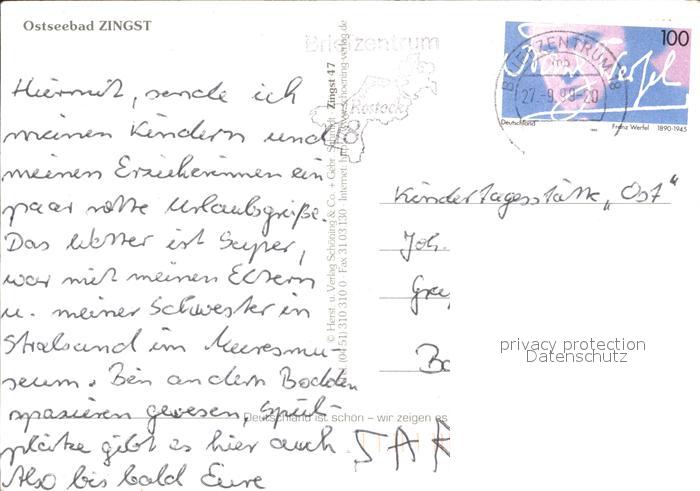 Ostseebad ZINGST
Hiermit, sende ich
meinen Kindern und
meinen Erzieherinnen ein
paar nette Urlaubsgrüße.
Das Wetter ist Super,
war mit meinen Eltern
u. meiner Schwester in
Stralsund im Meeresmu-
seum. Bin an dem Bodden
spazieren gewesen, Spiel-
plätze gibt es hier auch.
Also bis bald Eure
SAR
Zingst 47
© Herst. u. Verlag Schöning & Co. + Gebr. Schmidt
Tel. (0451) 310 310 0 · Fax 31 03 130 · Internet:
Deutschland ist schön – wir zeigen es
Briefzentrum
18
Rostock
BRIEFZENTRUM 18
27.-9.98-20
100
Franz Werfel
Deutschland
Franz Werfel 1890-1945
Kindertagesstätte „Ost"
Joh.
privacy protection
Datenschutz